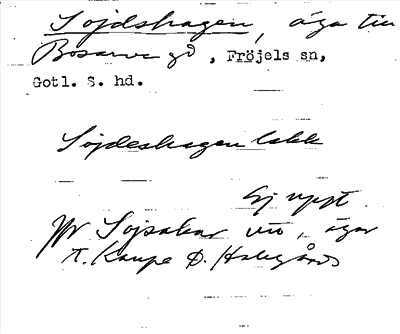 Söjdshagen, äga till
Bosarve gd, Fröjels sn,
Gotl. S. hd.
Söjdeshagen
Ej uppt.
Jfr Sojsakar , ägor
t. Kaupe o. Halsgårds